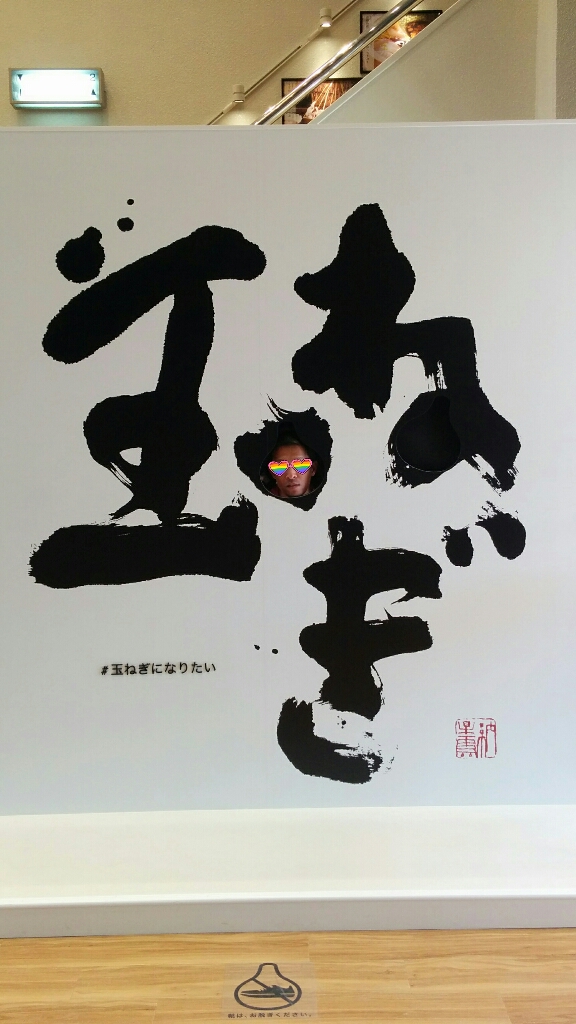 玉ねぎ
#玉ねぎになりたい
靴は、お脱ぎください。